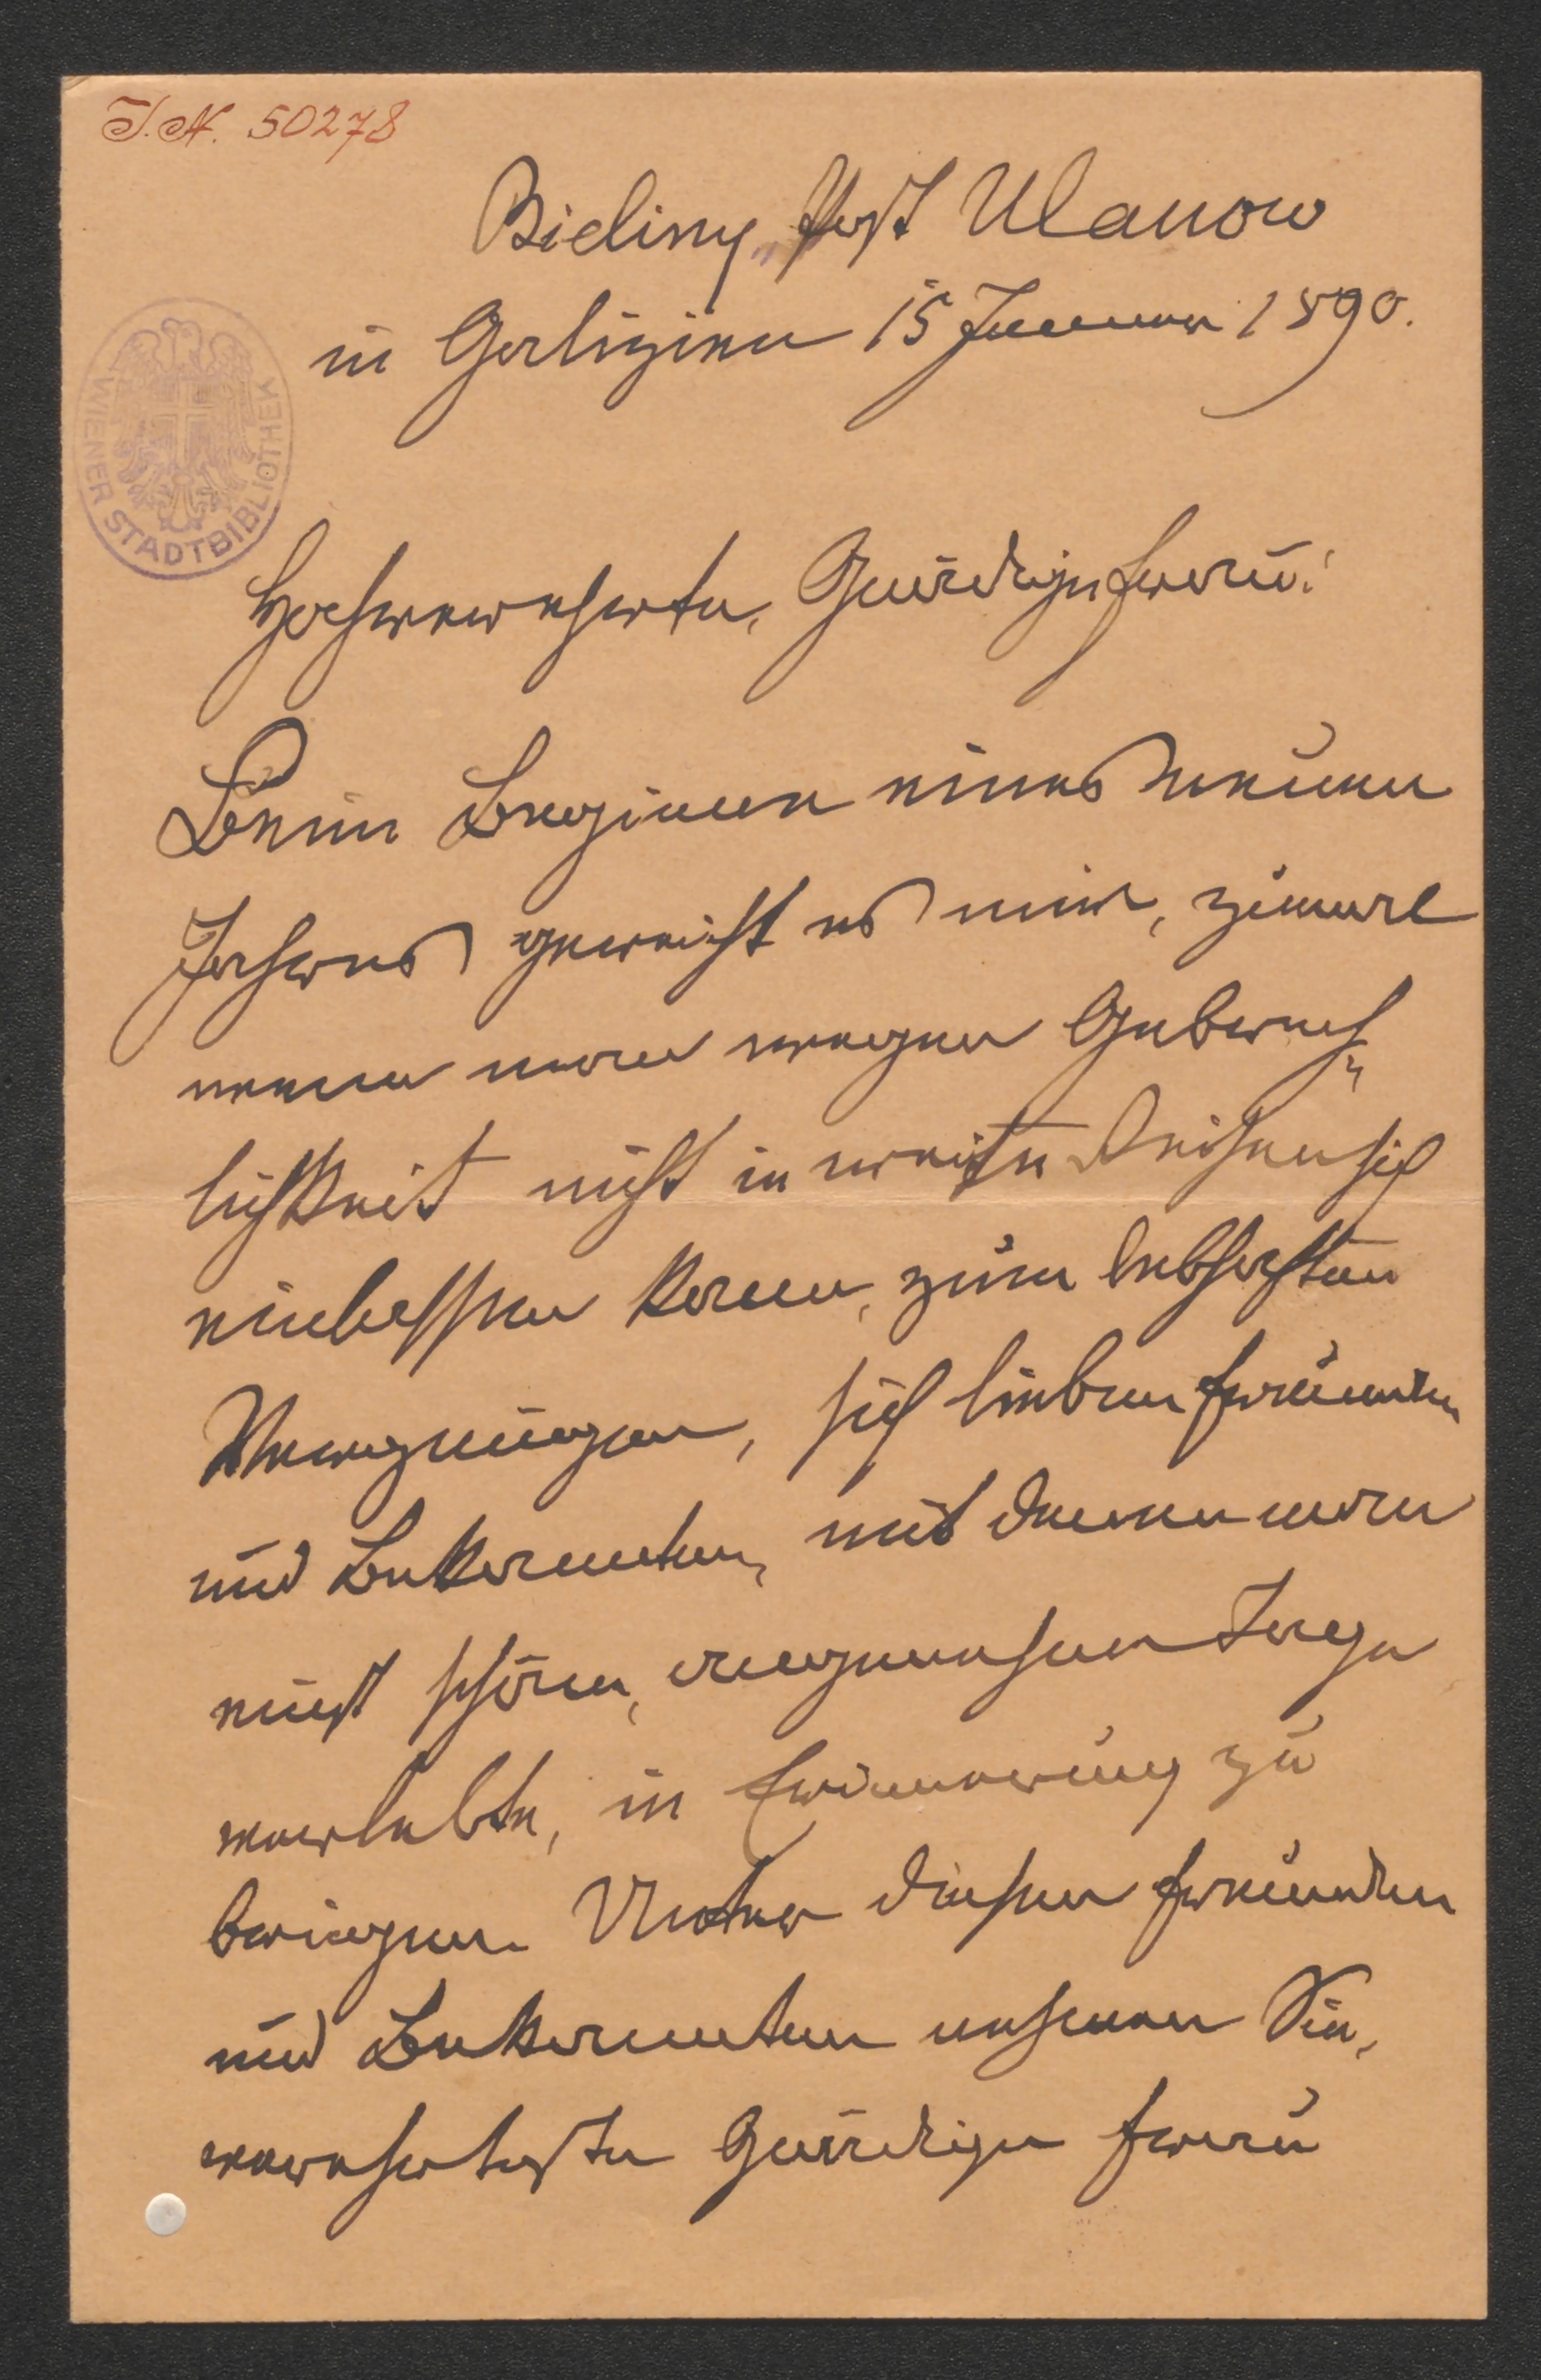 I.N. 50278
Bieliny, Post Ulanow
in Galizien 15 Januar 1890.
WIENER STADTBIBLIOTHEK
Hochverehrte, Gnädige Frau!
Beim Beginnen eines neuen
Jahres gereicht es mir, zumal
wenn man wegen Gebrech„
lichkeit nicht in weite Reisen sich
einlassen kann, zum lebhaften
Vergnügen, sich lieben Freunden
und Bekannten, mit denen man
einst schöne, angenehme Tage
verlebte, in Erinnerung zu
bringen. Unter diesen Freunden
und Bekannten nehmen Sie,
verehrteste Gnädige Frau